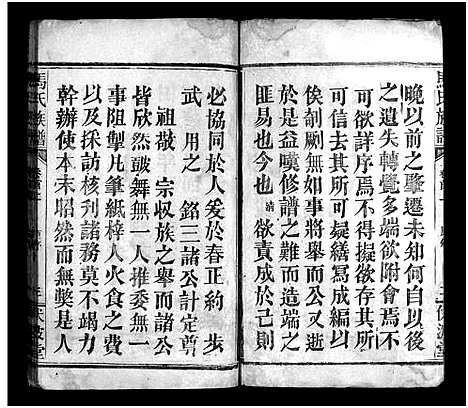 晚以前之肇遷未知何自以後
之遺失轉覺多端欲附會焉不
可欲詳焉不得擬欲存其所
可信去其所可擬繕寫成編以
俟剞劂無如事將舉而公又逝
於是益嘆修譜之難而造端之
匪易也今也請欲責成於於
必協同於人爰於春正約步
武用之銘三諸公計定尊
祖敬宗收族之舉而諸公
皆欣然鼓舞無一人推委無一
事阻掣凡筆紙梓人火食之費
以及採訪利諸務莫不竭力
幹辦使本末昭然而無獘是人
馬氏族譜